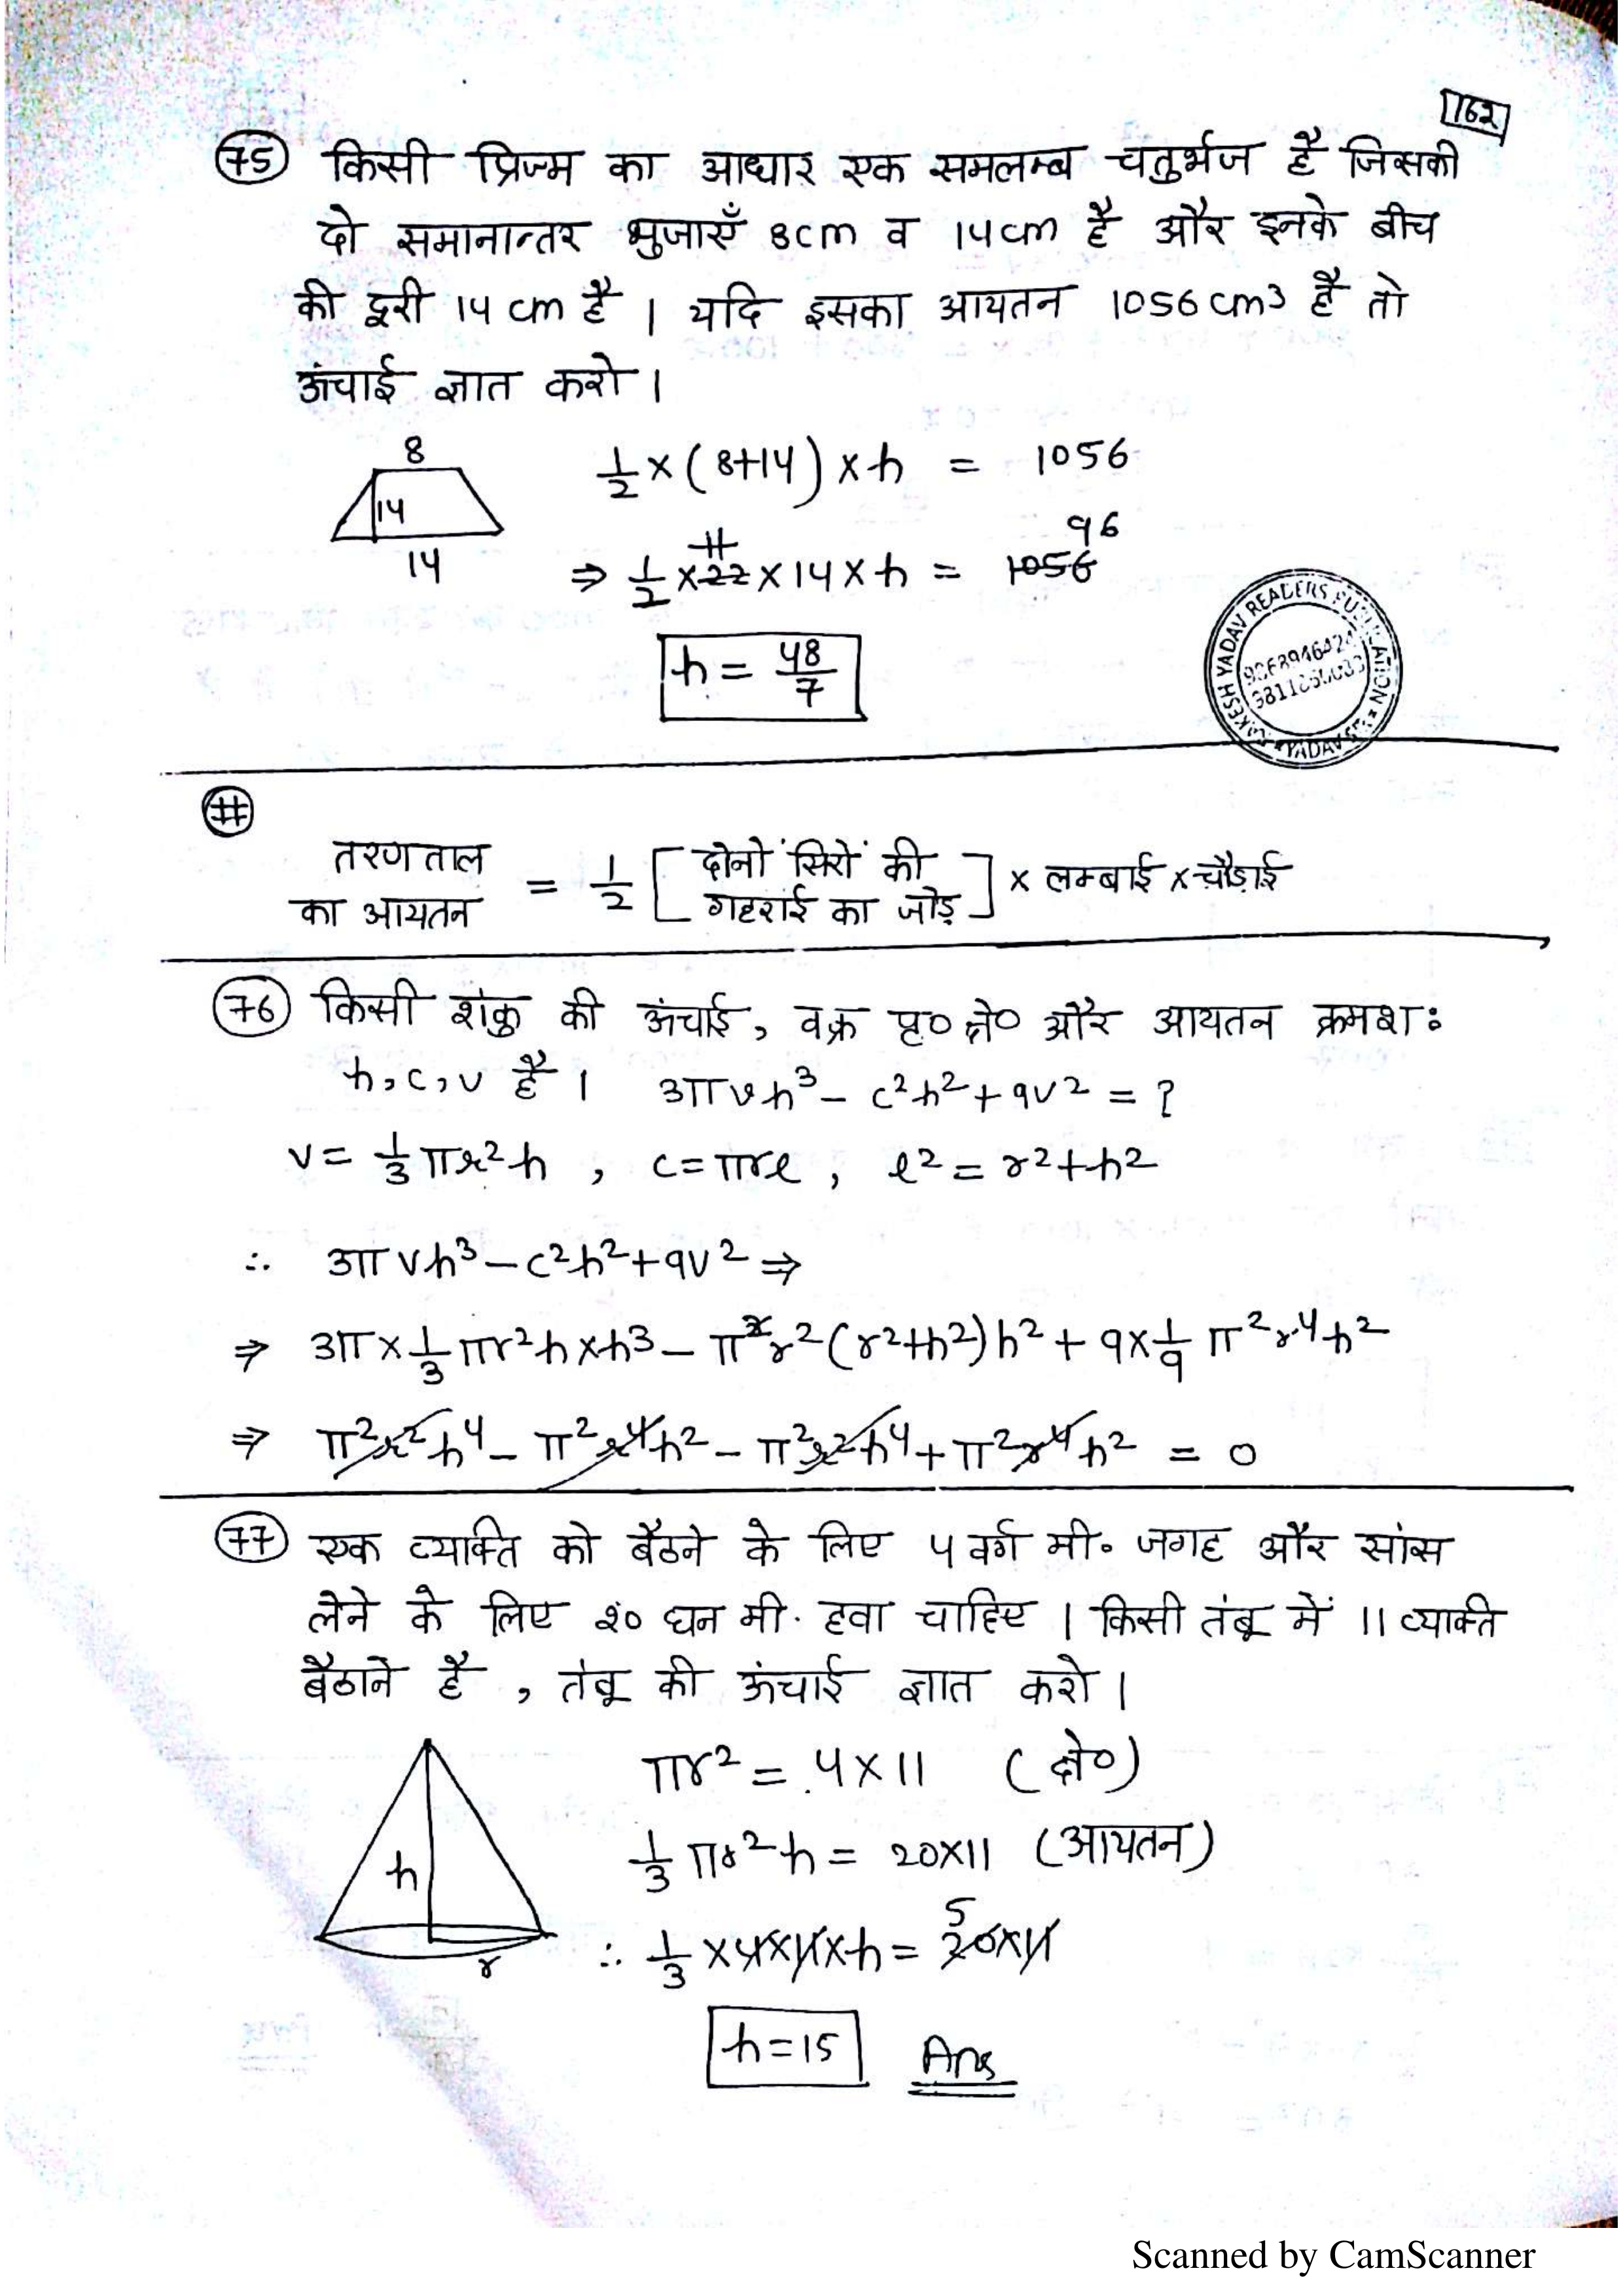 162
75 किसी प्रिज्म का आधार एक समलम्ब चतुर्भुज है जिसकी
दो समानान्तर भुजाएँ 8cm व 14cm है और इनके बीच
की दूरी 14 cm है । यदि इसका आयतन 1056 cm³ है तो
ऊंचाई ज्ञात करो ।
8
14
14
1/2 × (8+14) × h = 1056
96
11
⇒ 1/2 × 22 × 14 × h = 1056
h = 48/7
RAKESH YADAV READERS PUBLICATION
YADAV
#
तरणताल का आयतन = 1/2 [दोनों सिरों की गहराई का जोड़] × लम्बाई × चौड़ाई
76 किसी शंकु की ऊंचाई, वक्र पृ० क्षे० और आयतन क्रमशः
h, c, v है । 3πvh³ − c²h² + 9v² = ?
v = 1/3 πr²h , c = πrl , l² = r² + h²
∴ 3πvh³ − c²h² + 9v² ⇒
⇒ 3π × 1/3 πr²h × h³ − π²r²(r²+h²)h² + 9 × 1/9 π²r⁴h²
⇒ π²r²h⁴ − π²r⁴h² − π²r²h⁴ + π²r⁴h² = 0
77 एक व्यक्ति को बैठने के लिए 4 वर्ग मी॰ जगह और सांस
लेने के लिए 20 घन मी. हवा चाहिए । किसी तंबू में 11 व्यक्ति
बैठाने है , तंबू की ऊंचाई ज्ञात करो ।
h
r
πr² = 4×11 (क्षे०)
1/3 πr²h = 20×11 (आयतन)
5
∴ 1/3 × 4 × 11 × h = 20×11
h = 15 Ans
Scanned by CamScanner